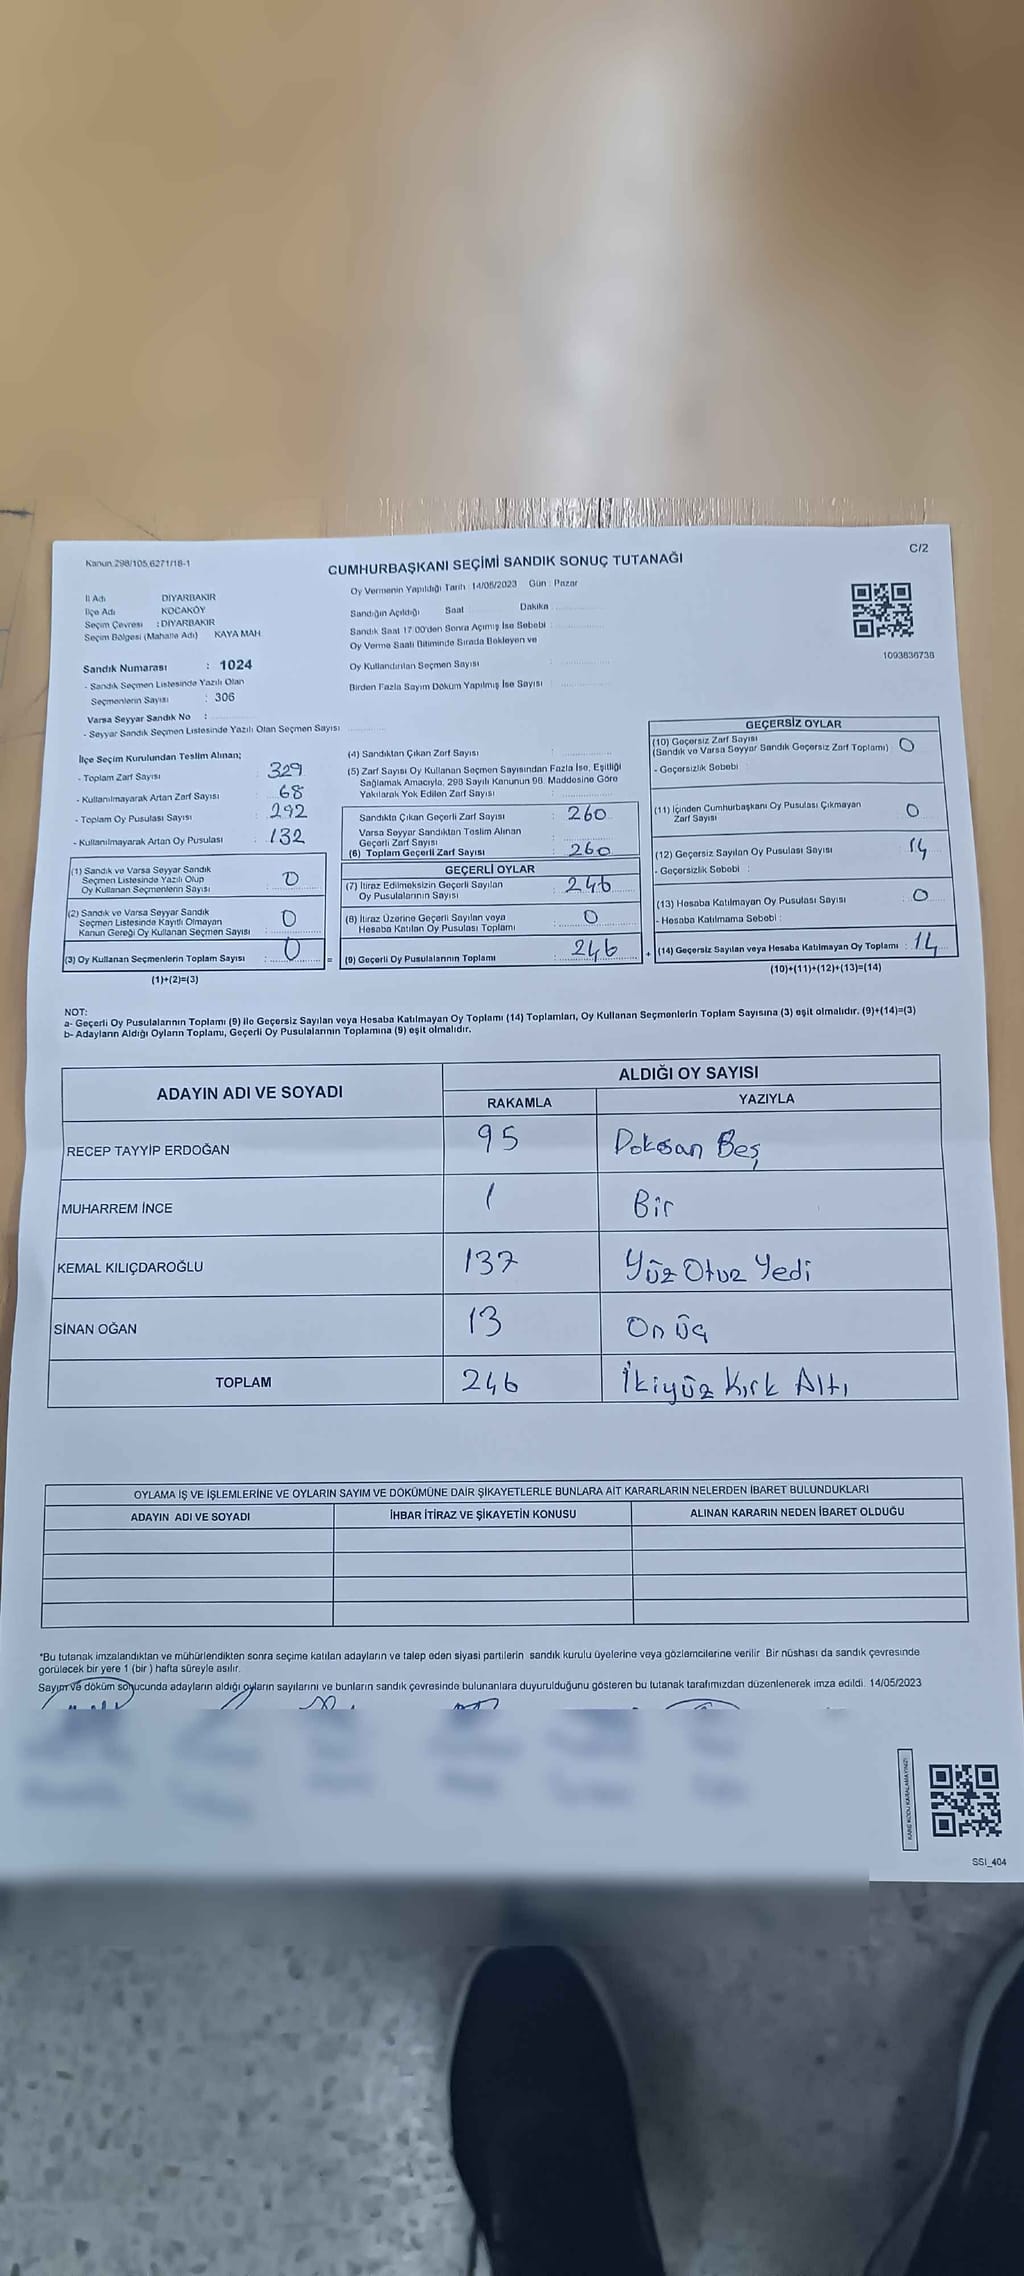 Kanun.298/105,6271/18-1
CUMHURBAŞKANI SEÇİMİ SANDIK SONUÇ TUTANAĞI
C/2
İl Adı DİYARBAKIR
İlçe Adı KOCAKÖY
Seçim Çevresi : DİYARBAKIR
Seçim Bölgesi (Mahalle Adı) KAYA MAH.
Sandık Numarası : 1024
- Sandık Seçmen Listesinde Yazılı Olan
Seçmenlerin Sayısı : 306
Varsa Seyyar Sandık No :
- Seyyar Sandık Seçmen Listesinde Yazılı Olan Seçmen Sayısı
Oy Vermenin Yapıldığı Tarih 14/05/2023 Gün : Pazar
Sandığın Açıldığı Saat Dakika
Sandık Saat 17:00'den Sonra Açımış İse Sebebi :
Oy Verme Saati Bitiminde Sırada Bekleyen ve
Oy Kullandırılan Seçmen Sayısı :
Birden Fazla Sayım Döküm Yapılmış İse Sayısı :
1093836738
İlçe Seçim Kurulundan Teslim Alınan;
- Toplam Zarf Sayısı : 329
- Kullanılmayarak Artan Zarf Sayısı : 68
- Toplam Oy Pusulası Sayısı : 292
- Kullanılmayarak Artan Oy Pusulası : 132
(1) Sandık ve Varsa Seyyar Sandık
Seçmen Listesinde Yazılı Olup
Oy Kullanan Seçmenlerin Sayısı : 0
(2) Sandık ve Varsa Seyyar Sandık
Seçmen Listesinde Kayıtlı Olmayan
Kanun Gereği Oy Kullanan Seçmen Sayısı : 0
(3) Oy Kullanan Seçmenlerin Toplam Sayısı : 0
(1)+(2)=(3)
=
(4) Sandıktan Çıkan Zarf Sayısı :
(5) Zarf Sayısı Oy Kullanan Seçmen Sayısından Fazla İse, Eşitliği
Sağlamak Amacıyla, 298 Sayılı Kanunun 98. Maddesine Göre
Yakılarak Yok Edilen Zarf Sayısı :
Sandıkta Çıkan Geçerli Zarf Sayısı : 260
Varsa Seyyar Sandıktan Teslim Alınan
Geçerli Zarf Sayısı :
(6) Toplam Geçerli Zarf Sayısı : 260
GEÇERLİ OYLAR
(7) İtiraz Edilmeksizin Geçerli Sayılan
Oy Pusulalarının Sayısı : 246
(8) İtiraz Üzerine Geçerli Sayılan veya
Hesaba Katılan Oy Pusulası Toplamı : 0
(9) Geçerli Oy Pusulalarının Toplamı : 246
+
GEÇERSİZ OYLAR
(10) Geçersiz Zarf Sayısı
(Sandık ve Varsa Seyyar Sandık Geçersiz Zarf Toplamı) : 0
- Geçersizlik Sebebi :
(11) İçinden Cumhurbaşkanı Oy Pusulası Çıkmayan
Zarf Sayısı : 0
(12) Geçersiz Sayılan Oy Pusulası Sayısı : 14
- Geçersizlik Sebebi :
(13) Hesaba Katılmayan Oy Pusulası Sayısı : 0
- Hesaba Katılmama Sebebi :
(14) Geçersiz Sayılan veya Hesaba Katılmayan Oy Toplamı : 14
(10)+(11)+(12)+(13)=(14)
NOT:
a- Geçerli Oy Pusulalarının Toplamı (9) ile Geçersiz Sayılan veya Hesaba Katılmayan Oy Toplamı (14) Toplamları, Oy Kullanan Seçmenlerin Toplam Sayısına (3) eşit olmalıdır. (9)+(14)=(3)
b- Adayların Aldığı Oyların Toplamı, Geçerli Oy Pusulalarının Toplamına (9) eşit olmalıdır.
ADAYIN ADI VE SOYADI
ALDIĞI OY SAYISI
RAKAMLA YAZIYLA
RECEP TAYYİP ERDOĞAN 95 Doksan Beş
MUHARREM İNCE 1 Bir
KEMAL KILIÇDAROĞLU 137 Yüz Otuz Yedi
SİNAN OĞAN 13 On üç
TOPLAM 246 İkiyüz Kırk Altı
OYLAMA İŞ VE İŞLEMLERİNE VE OYLARIN SAYIM VE DÖKÜMÜNE DAİR ŞİKAYETLERLE BUNLARA AİT KARARLARIN NELERDEN İBARET BULUNDUKLARI
ADAYIN ADI VE SOYADI İHBAR İTİRAZ VE ŞİKAYETİN KONUSU ALINAN KARARIN NEDEN İBARET OLDUĞU
*Bu tutanak imzalandıktan ve mühürlendikten sonra seçime katılan adayların ve talep eden siyasi partilerin sandık kurulu üyelerine veya gözlemcilerine verilir Bir nüshası da sandık çevresinde
görülecek bir yere 1 (bir ) hafta süreyle asılır.
Sayım ve döküm sonucunda adayların aldığı oyların sayılarını ve bunların sandık çevresinde bulunanlara duyurulduğunu gösteren bu tutanak tarafımızdan düzenlenerek imza edildi. 14/05/2023
KARE KODU KARALAMAYINIZ!
SSI_404